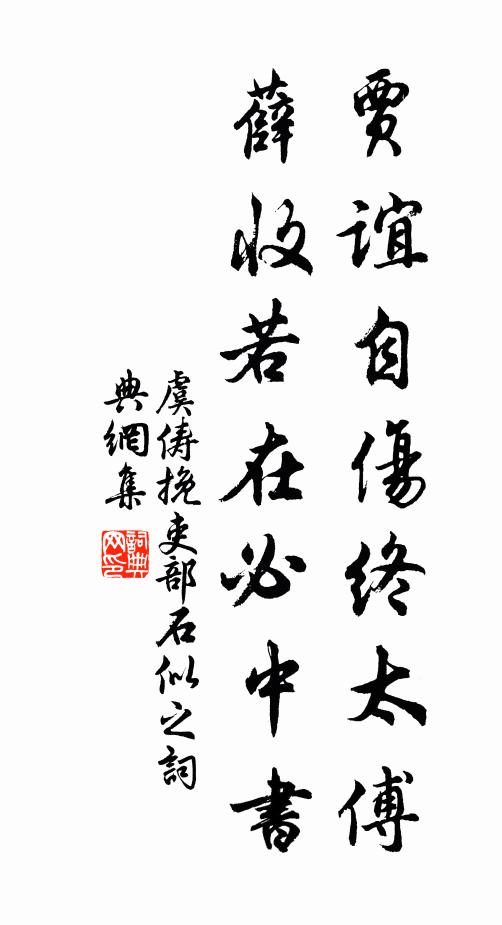 賈誼自傷終太傅
薛收若在必中書
虞儔挽吏部石似之詞
典網集
詞典
网印